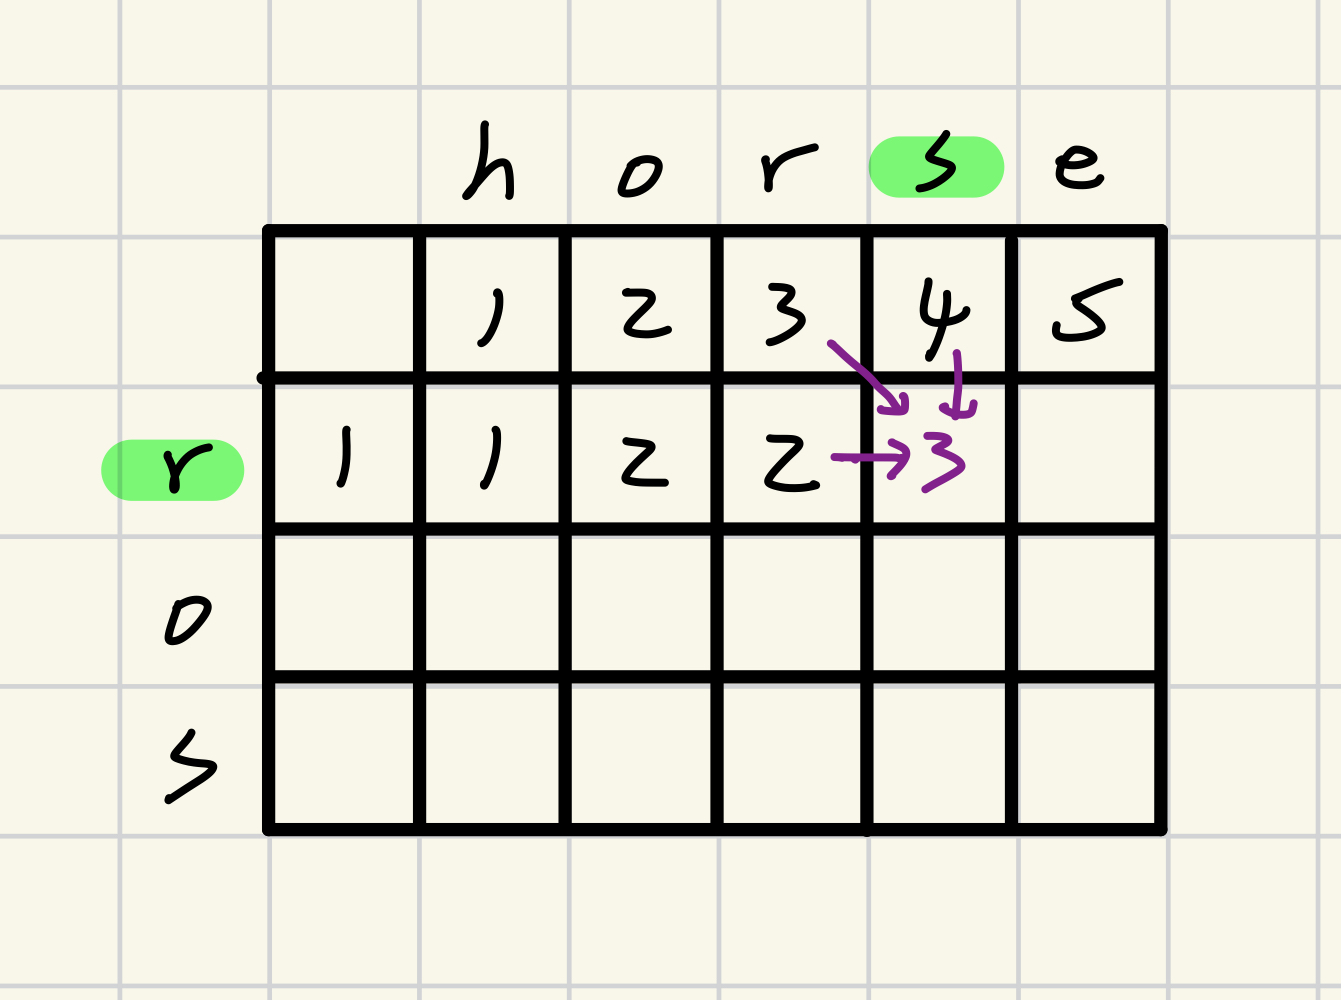 h o r s e
1 2 3 4 5
r 1 1 2 2 3
o
s